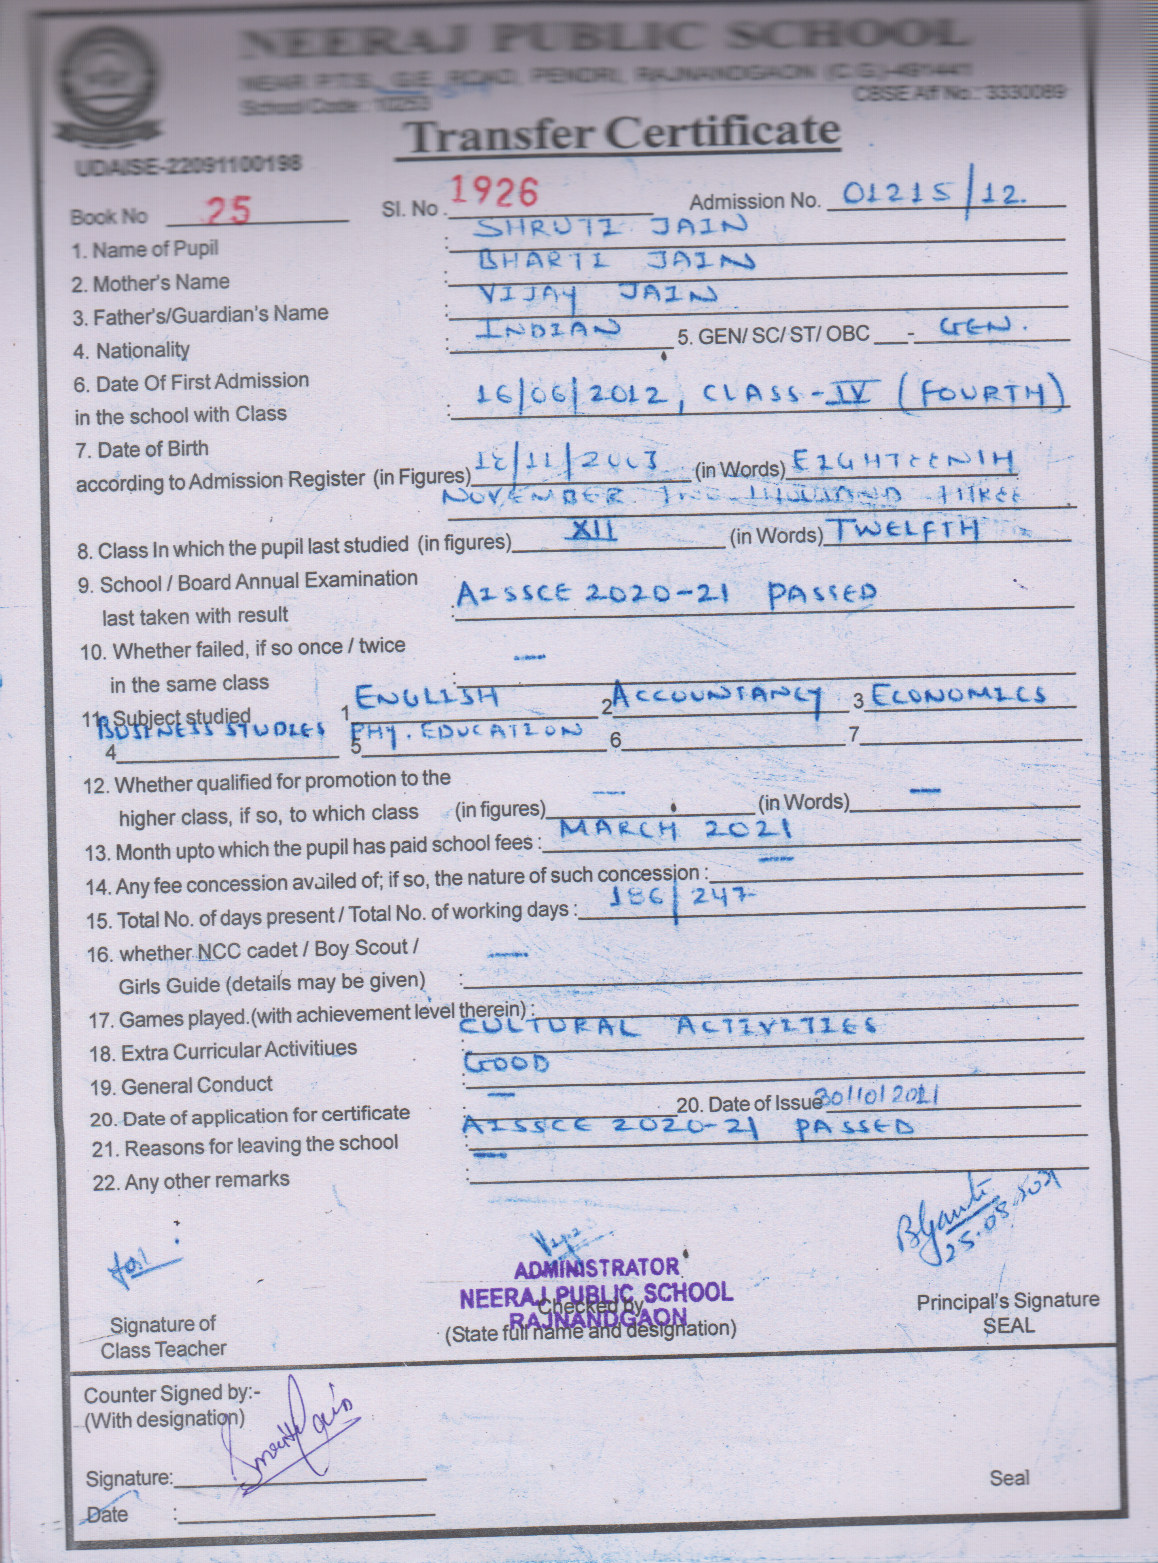 NEERAJ PUBLIC SCHOOL
NEAR P.T.S., G.E. ROAD, PENDRI, RAJNANDGAON (C.G.)-491441
School Code : 10253 CBSE Aff No.: 3330089
Transfer Certificate
UDAISE-22091100198
Book No 25 Sl. No. 1926 Admission No. 01215/12.
1. Name of Pupil : SHRUTI JAIN
2. Mother's Name : BHARTI JAIN
3. Father's/Guardian's Name : VIJAY JAIN
4. Nationality : INDIAN 5. GEN/ SC/ ST/ OBC - GEN.
6. Date Of First Admission
in the school with Class : 16/06/2012, CLASS-IV (FOURTH)
7. Date of Birth
according to Admission Register (in Figures) 18/11/2003 (in Words) EIGHTEENTH
NOVEMBER TWO THOUSAND THREE
8. Class In which the pupil last studied (in figures) XII (in Words) TWELFTH
9. School / Board Annual Examination
last taken with result : AISSCE 2020-21 PASSED
10. Whether failed, if so once / twice
in the same class : —
11. Subject studied 1 ENGLISH 2 ACCOUNTANCY 3 ECONOMICS
4 BUSINESS STUDIES 5 PHY. EDUCATION 6 7
12. Whether qualified for promotion to the
higher class, if so, to which class (in figures) — (in Words) —
13. Month upto which the pupil has paid school fees : MARCH 2021
14. Any fee concession availed of; if so, the nature of such concession : —
15. Total No. of days present / Total No. of working days : 186/247
16. whether NCC cadet / Boy Scout /
Girls Guide (details may be given) : —
17. Games played.(with achievement level therein) :
18. Extra Curricular Activitiues : CULTURAL ACTIVITIES
19. General Conduct : GOOD
20. Date of application for certificate : — 20. Date of Issue 30/10/2021
21. Reasons for leaving the school : AISSCE 2020-21 PASSED
22. Any other remarks : —
25.08.2021
ADMINISTRATOR
NEERAJ PUBLIC SCHOOL
RAJNANDGAON
Signature of
Class Teacher
Checked by
(State full name and designation)
Principal's Signature
SEAL
Counter Signed by:-
(With designation)
Signature:
Seal
Date :